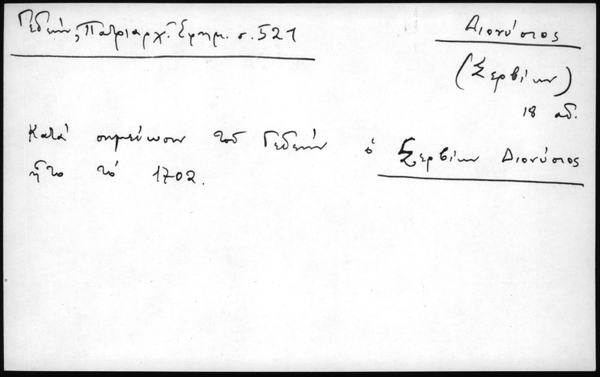 Γεδεών, Πατριαρχ. Εφημ. σ. 521
Διονύσιος
(Σερβίων)
18 αι.
Κατά σημείωσιν του Γεδεών ο Σερβίων Διονύσιος
ήτο το 1702.